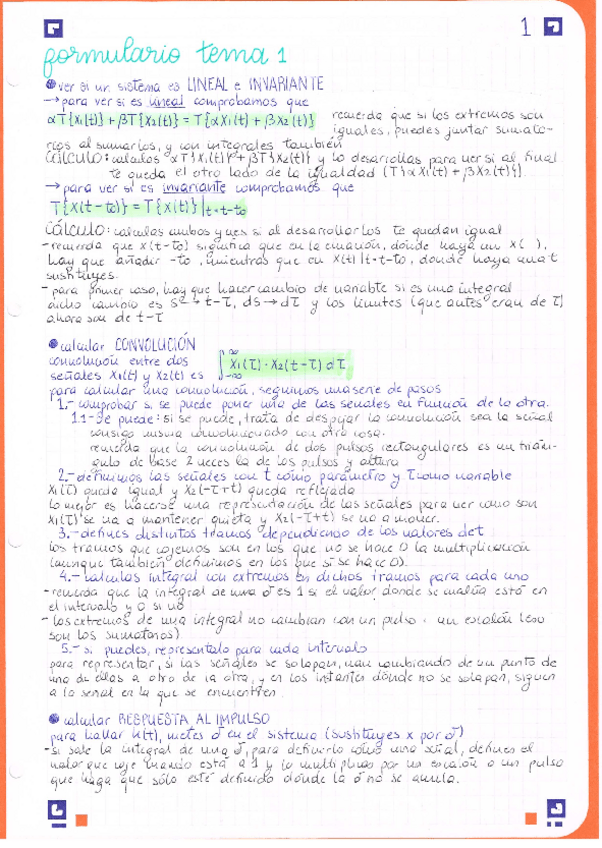 1
formulario tema 1
ver si un sistema es LINEAL e INVARIANTE
→ para ver si es lineal comprobamos que
αT{x1(t)} + βT{x2(t)} = T{αx1(t) + βx2(t)} recuerda que si los extremos son
iguales, puedes juntar sumato-
rios al sumarlos, y con integrales también
CÁLCULO: calculas αT{x1(t)} + βT{x2(t)} y lo desarrollas para ver si al final
te queda el otro lado de la igualdad (T{αx1(t) + βx2(t)}).
→ para ver si es invariante comprobamos que
T{x(t-t0)} = T{x(t)}|t=t-t0
CÁLCULO: calculas ambos y ves si al desarrollarlos te quedan igual
- recuerda que x(t-t0) significa que en la ecuación, donde haya un x( ),
hay que añadir -t0, mientras que en x(t)|t=t-t0, donde haya una t
sustituyes.
- para primer caso, hay que hacer cambio de variable si es una integral
dicho cambio es t-τ, ds → dτ y los límites (que antes eran de τ)
ahora son de t-τ
calcular CONVOLUCIÓN
convolución entre dos
señales x1(t) y x2(t) es ∫-∞ ∞ x1(τ)·x2(t-τ)dτ
para calcular una convolución, seguimos una serie de pasos
1.- comprobar si se puede poner una de las señales en función de la otra.
1.1- Se puede: si se puede, trata de despejar la convolución sea la señal
consigo misma convolucionado con otra cosa.
recuerda que la convolución de dos pulsos rectangulares es un trián-
gulo de base 2 veces la de los pulsos y altura
2.- definimos las señales con t como parámetro y τ como variable
x1(τ) queda igual y x2(-τ+t) queda reflejada
lo mejor es hacerse una representación de las señales para ver como son
x1(τ) se va a mantener quieta y x2(-τ+t) se va a mover.
3.- defines distintos tramos dependiendo de los valores de t
los tramos que cogemos son en los que no se hace 0 la multiplicación
(aunque también definimos en los que sí se hace 0).
4.- calculas integral con extremos en dichos tramos para cada uno
- recuerda que la integral de una δ es 1 si el valor donde se evalúa está en
el intervalo y 0 si no
- los extremos de una integral no cambian con un pulso o un escalón (eso
son los sumatorios)
5.- si puedes, represéntalo para cada intervalo
para representar, si las señales se solapan, van cambiando de un punto de
una de ellas a otro de la otra, y en los instantes donde no se solapan, siguen
a la señal en la que se encuentren
calcular RESPUESTA AL IMPULSO
para hallar h(t), metes δ en el sistema (sustituyes x por δ)
- si sale la integral de una δ, para definirlo como una señal, defines el
valor que coje cuando está a 1 y lo multiplicas por un escalón o un pulso
que haga que sólo esté definido donde la δ no se anula.